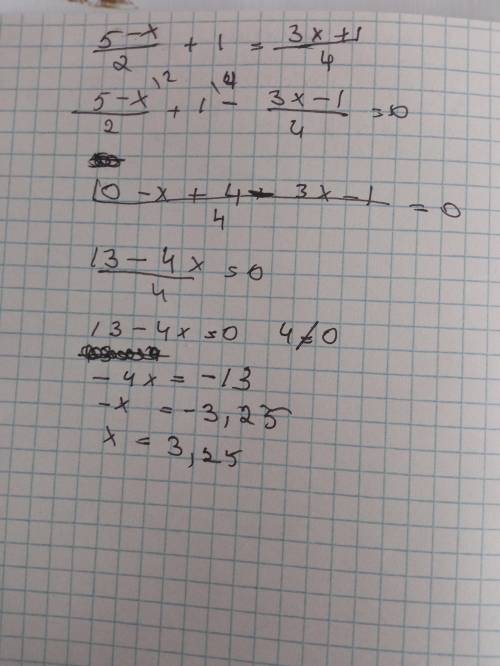 (5-x)/2 + 1 = (3x+1)/4
(5-x)/2 \2 + 1 \4 - (3x-1)/4 = 0
(10-x+4-3x-1)/4 = 0
(13-4x)/4 = 0
13-4x=0 4≠0
-4x = -13
-x = -3,25
x = 3,25